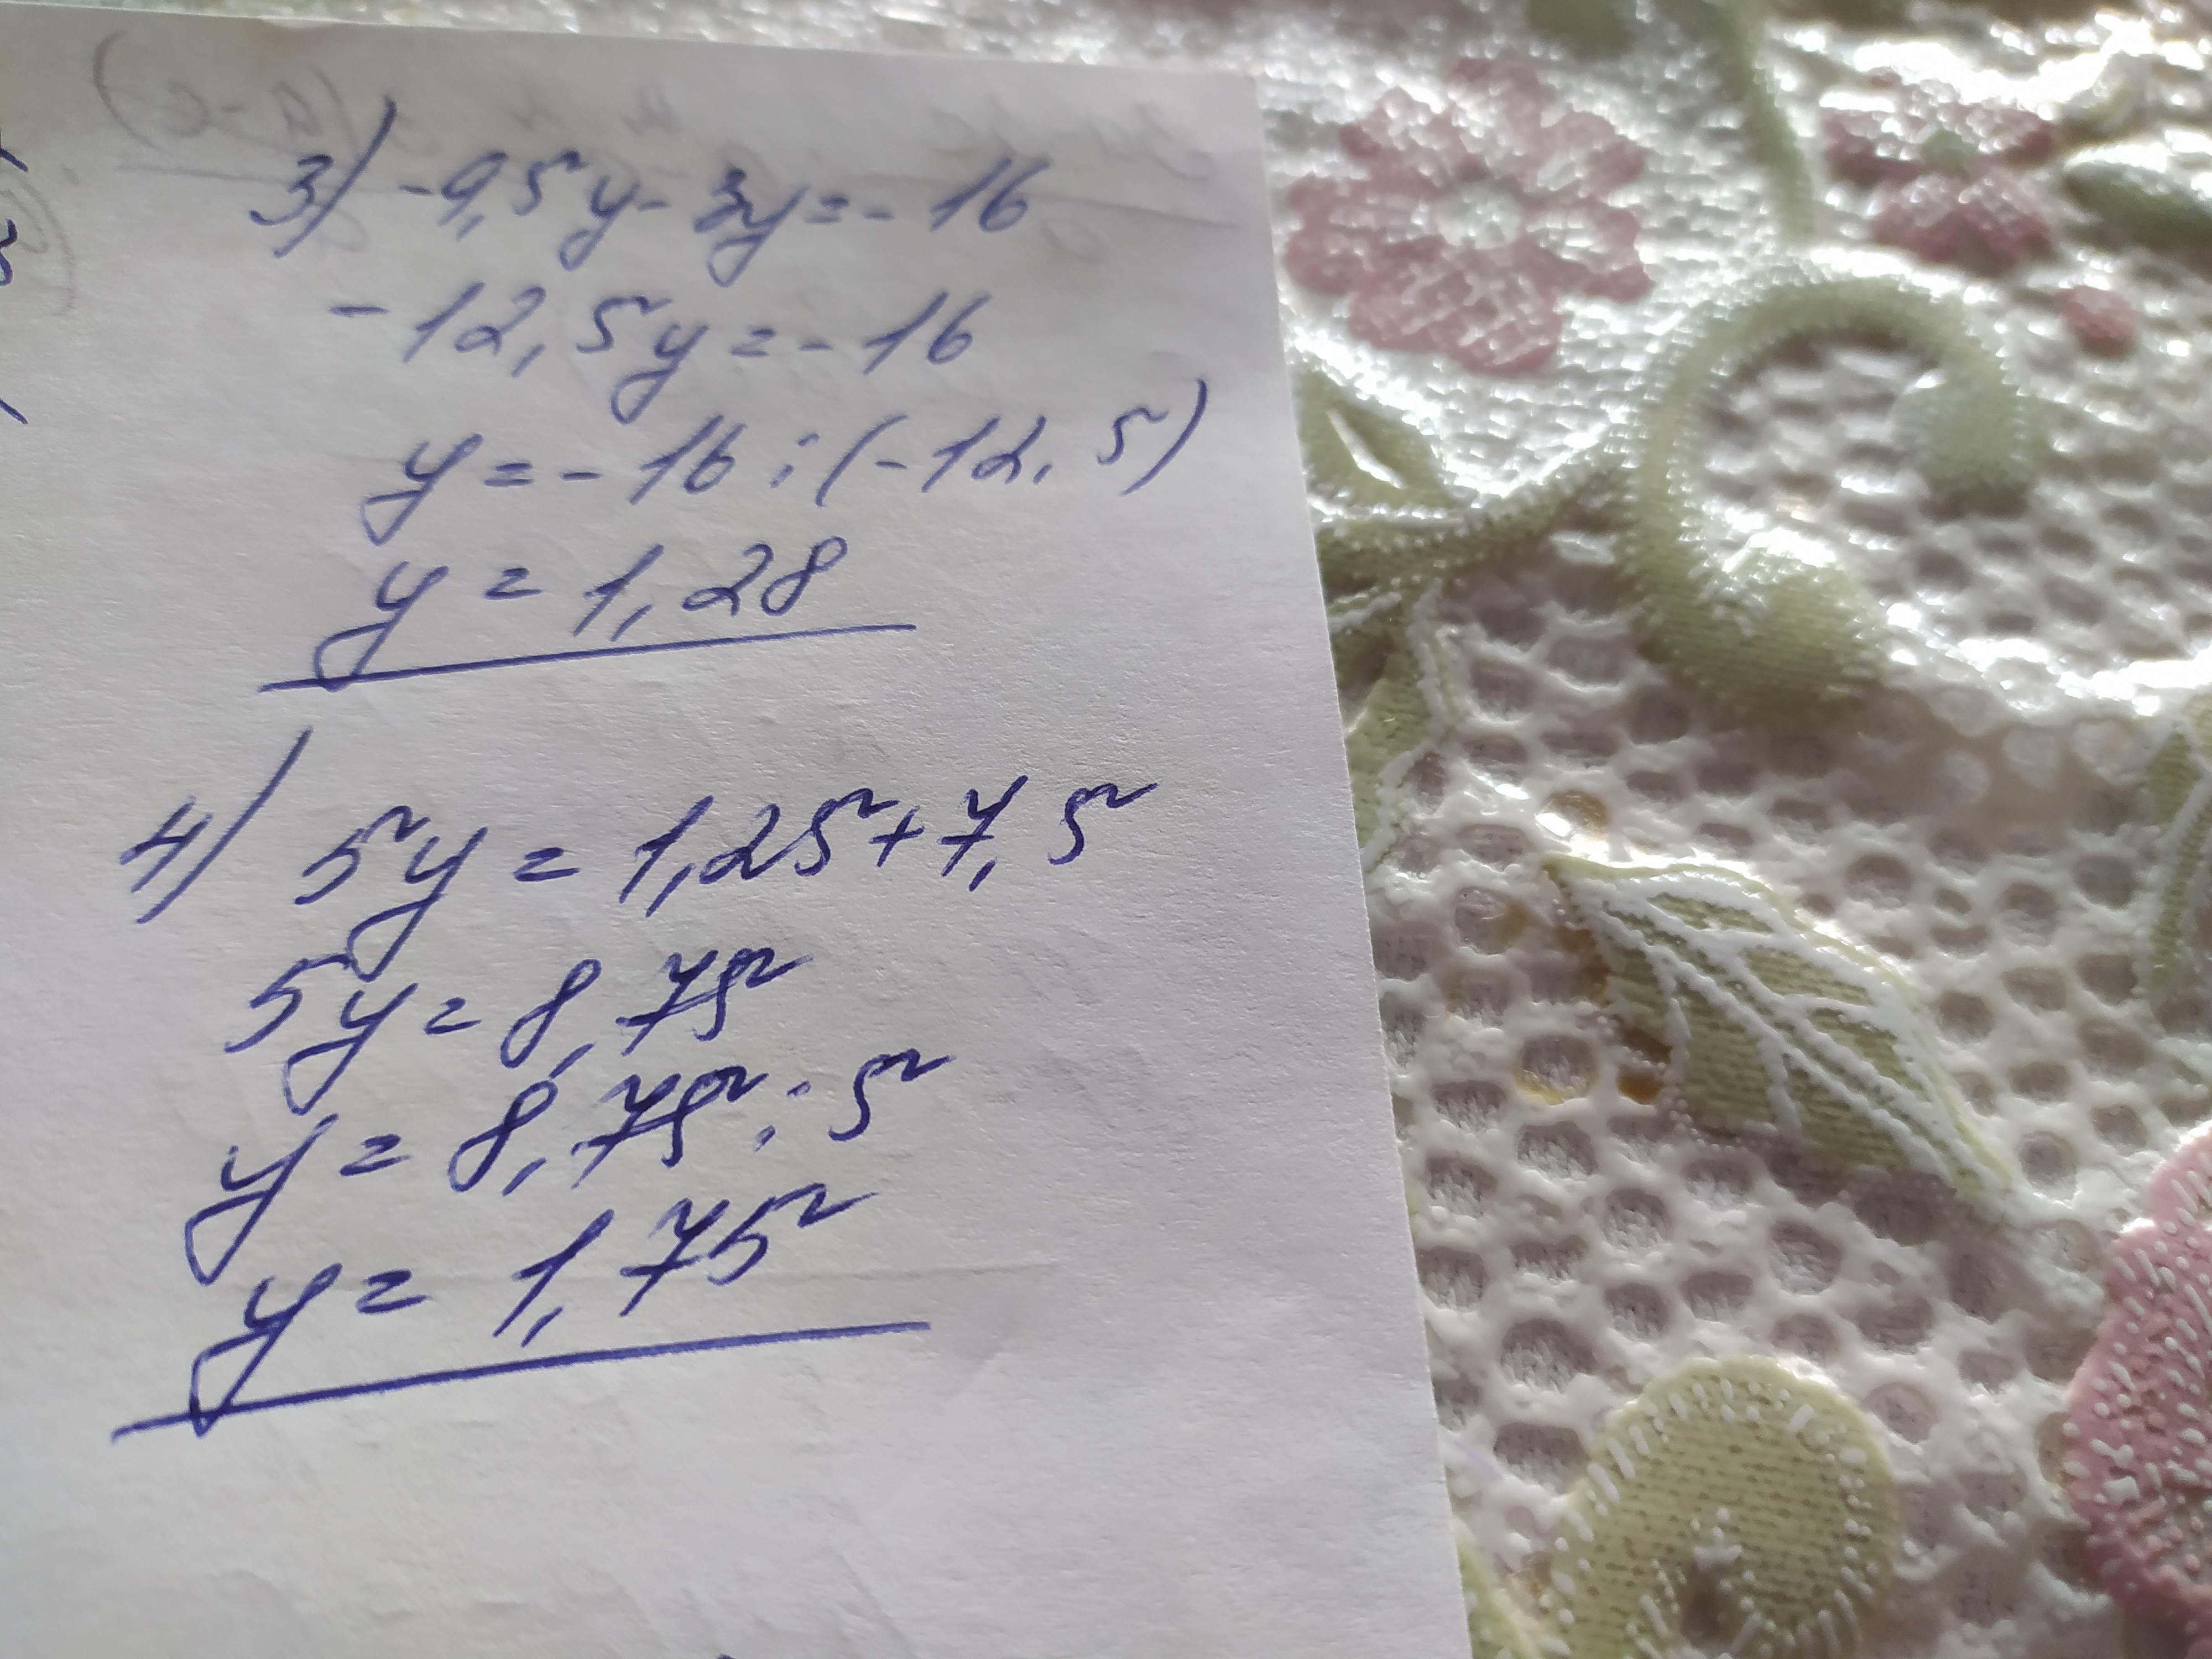 3) -9,5y - 3y = - 16
-12,5y = - 16
y = - 16 : (-12,5)
y = 1,28
4) 5y = 1,25 + 7,5
5y = 8,75
y = 8,75 : 5
y = 1,75